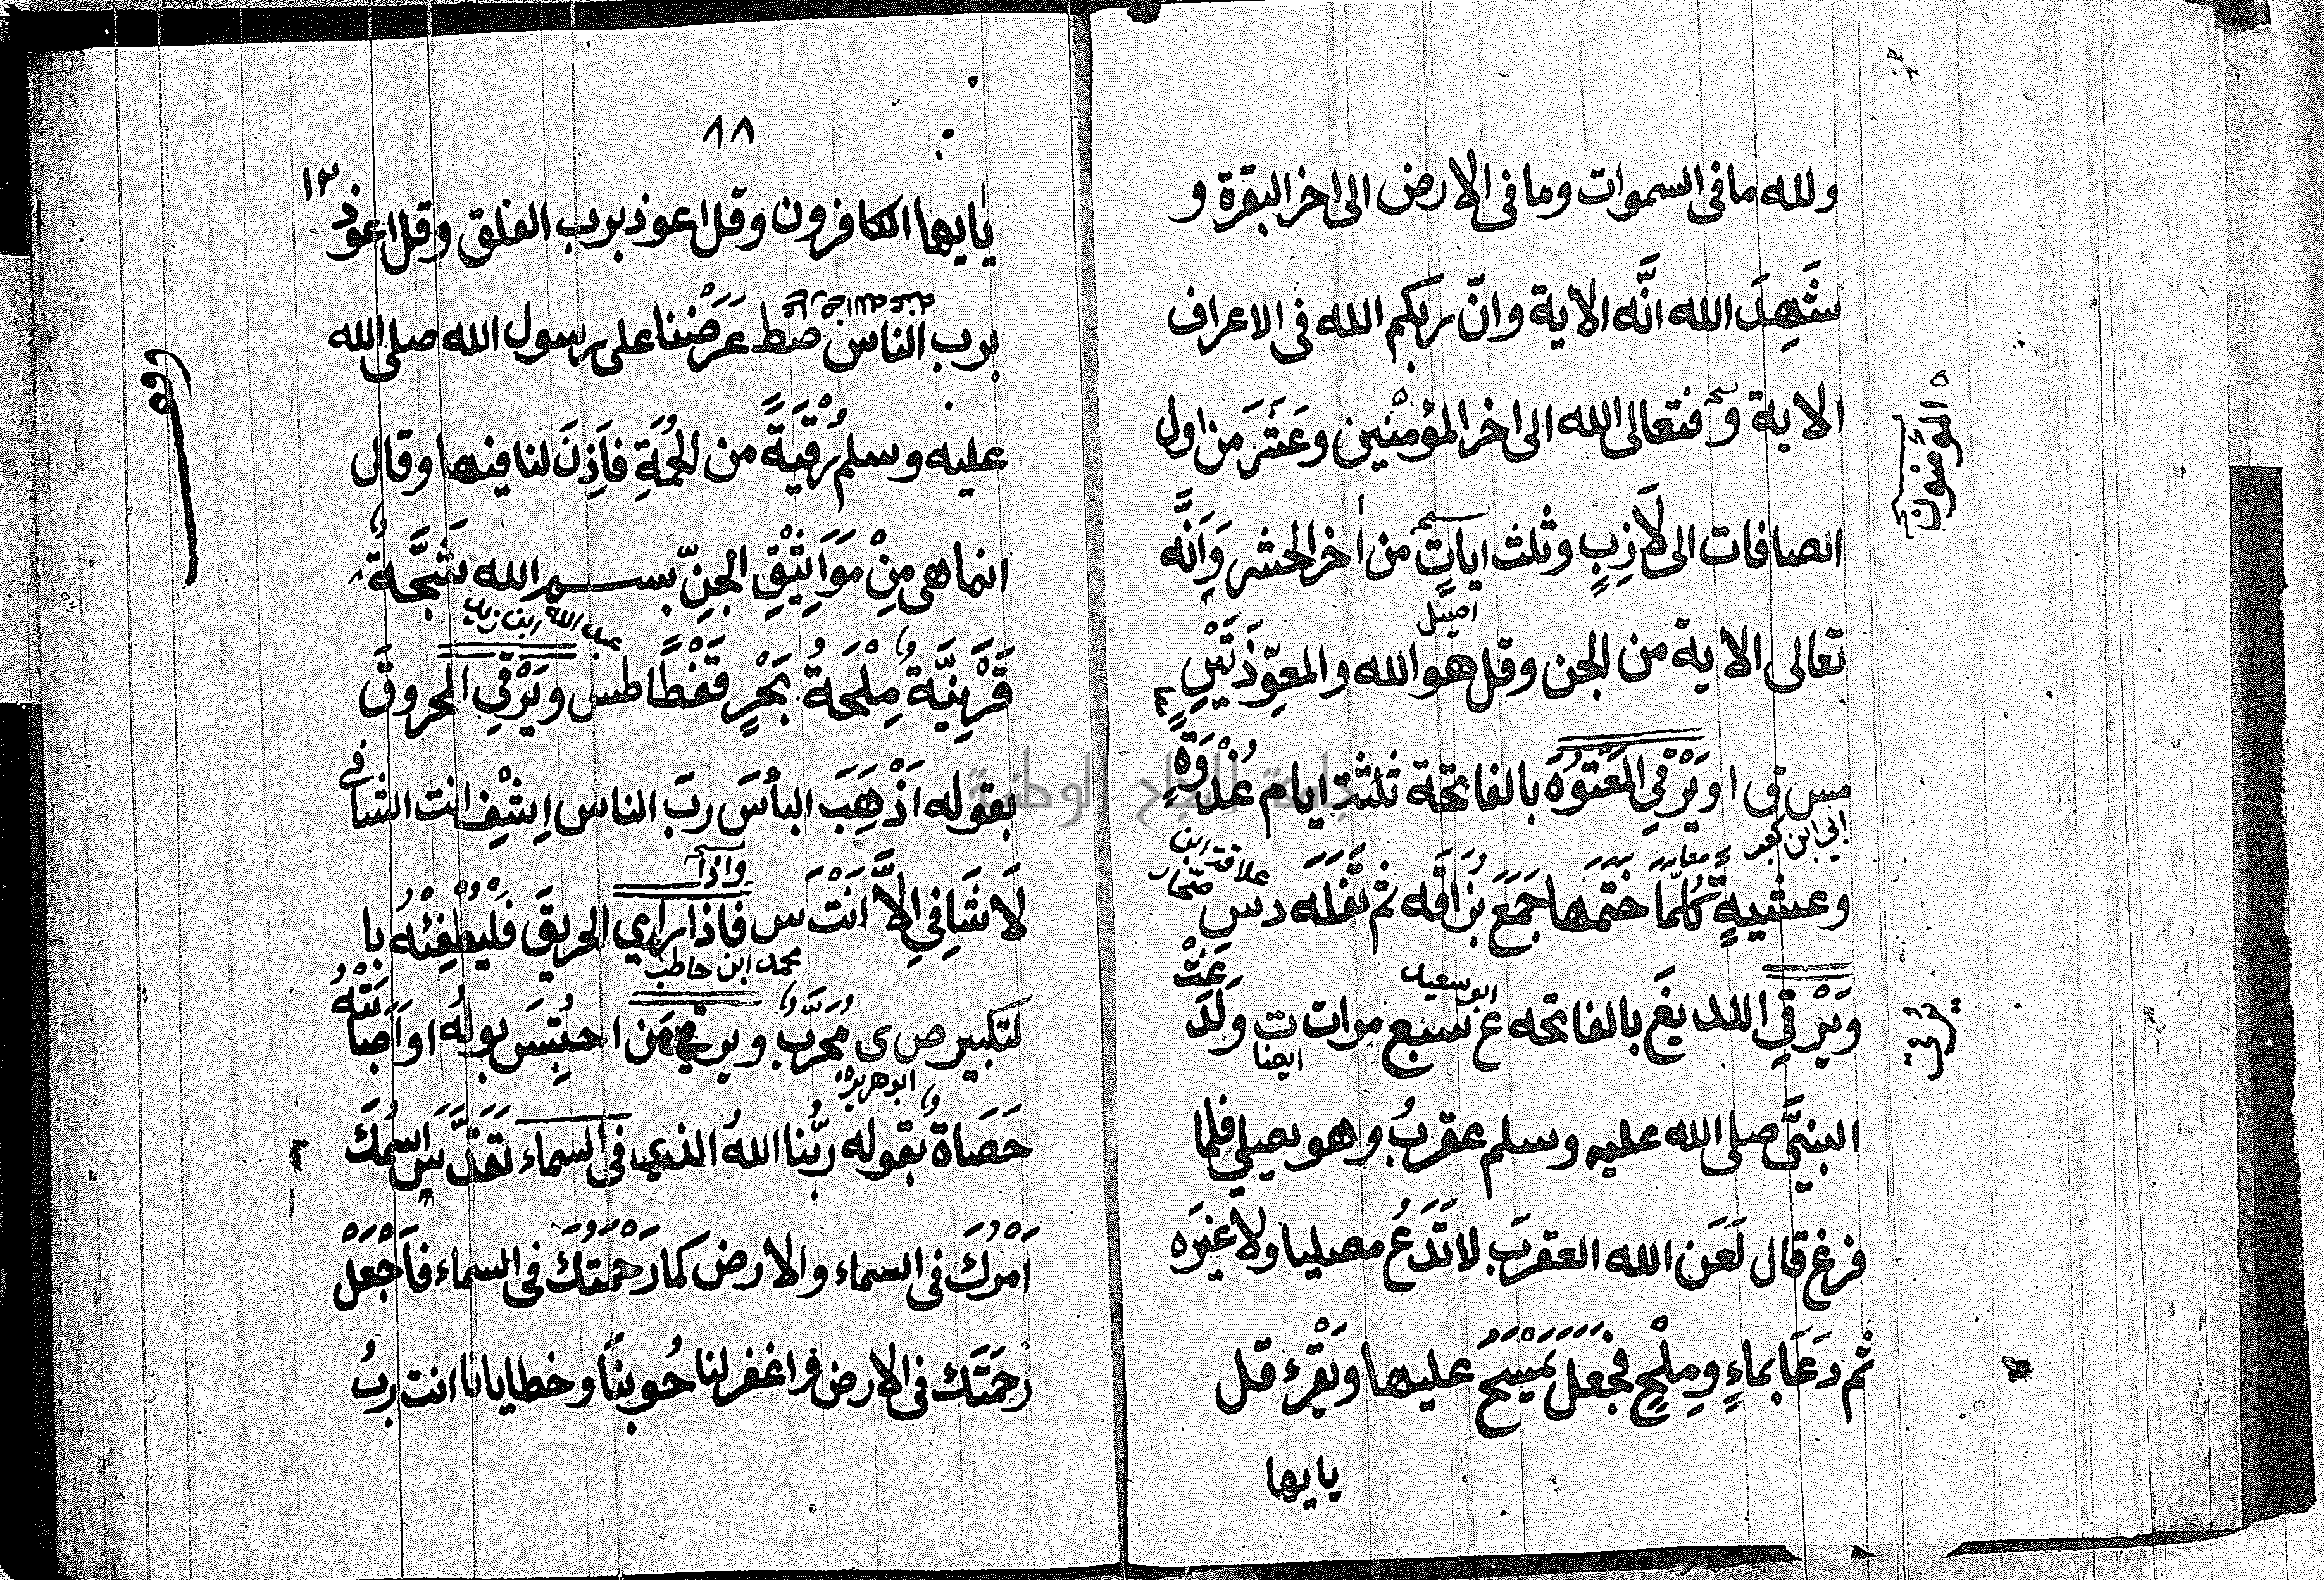 ولله ما فى السموات وما فى الارض الى اخر البقرة و
شَهِدَ الله انَّه الاية وانّ ربكم الله فى الاعراف
الاية وَ فتعالى الله الى اخر المؤمنين وعَشَرَ من اول
المؤمنون
الصافات الى لَازِبٍ وثلث اياتٍ من اخر الحشر وَاَنَّه
تعالى الاية من الجن وقل هو الله والمعوّذَتَيْنِ
مس ق او يَرْقِي المَعْتُوْهَ بالفاتحة ثلثة ايام غُدْوَةً
ابي ابن كعب
وعشيةٍ كُلّمَا خَتَمَها جَمَعَ بُزَاقَه ثم تَفَلَه د س
علاقة ابن صحار
ويَرْقِي اللديغَ بالفاتحه ع سبع مرات ت ولَدَغَتْ
ابو سعيد
ايضا
النبيَّ صلى الله عليه وسلم عقربُ وهو يصلي فلما
فرغ قال لَعَنَ الله العقربَ لا تَدَعُ مصليا ولا غيَره
ثم دعَا بماءٍ ومِلْحٍ فجعل يَمْسَحُ عليها ويَقْرءُ قل
يايها
٨٨
١٣
يايها الكافرون وقل اعوذ برب الفلق وقل اعوذ
برب الناس صط عَرَضْنا على رسول الله صلى الله
عليه وسلم رُقْيَةً من الحُمَةِ فاَذِنَ لنا فيها وقال
انما هى مِنْ مَوَاثِيْقِ الجنِّ بسم الله شَجَّةٌ
قَرْنِيَّةٌ مِلْحَةُ بَحْرٍ قَفْطًا طس ويَرْقِي المحروقَ
عبد الله ابن زيد
بقوله اَذْهِبَ البأسَ ربَ الناس اِشْفِ انت الشافي
لَا شَافِي اِلاَّ اَنْتَ س فاذا رأي الحريقَ فَلْيُطْفِئْهُ با
واذا
محمد ابن حاطب
لتكبير ص ى مُجَرَّبٌ ويرقي مَن احتُبِسَ بولُه او اَصَابَتْهُ
حَصَاةٌ بقوله ربُّنا اللهُ الذي فى السماء تقَدَّسَ اسْمُكَ
ابو هريرة
اَمْرُكَ فى السماء والارض كما رَحْمَتُكَ فى السماء فاَجْعَلْ
رحمَتَكَ فى الارض واغفر لنا حُوبنَا وخطايانا انت ربُ
جامعة النجاح الوطنية